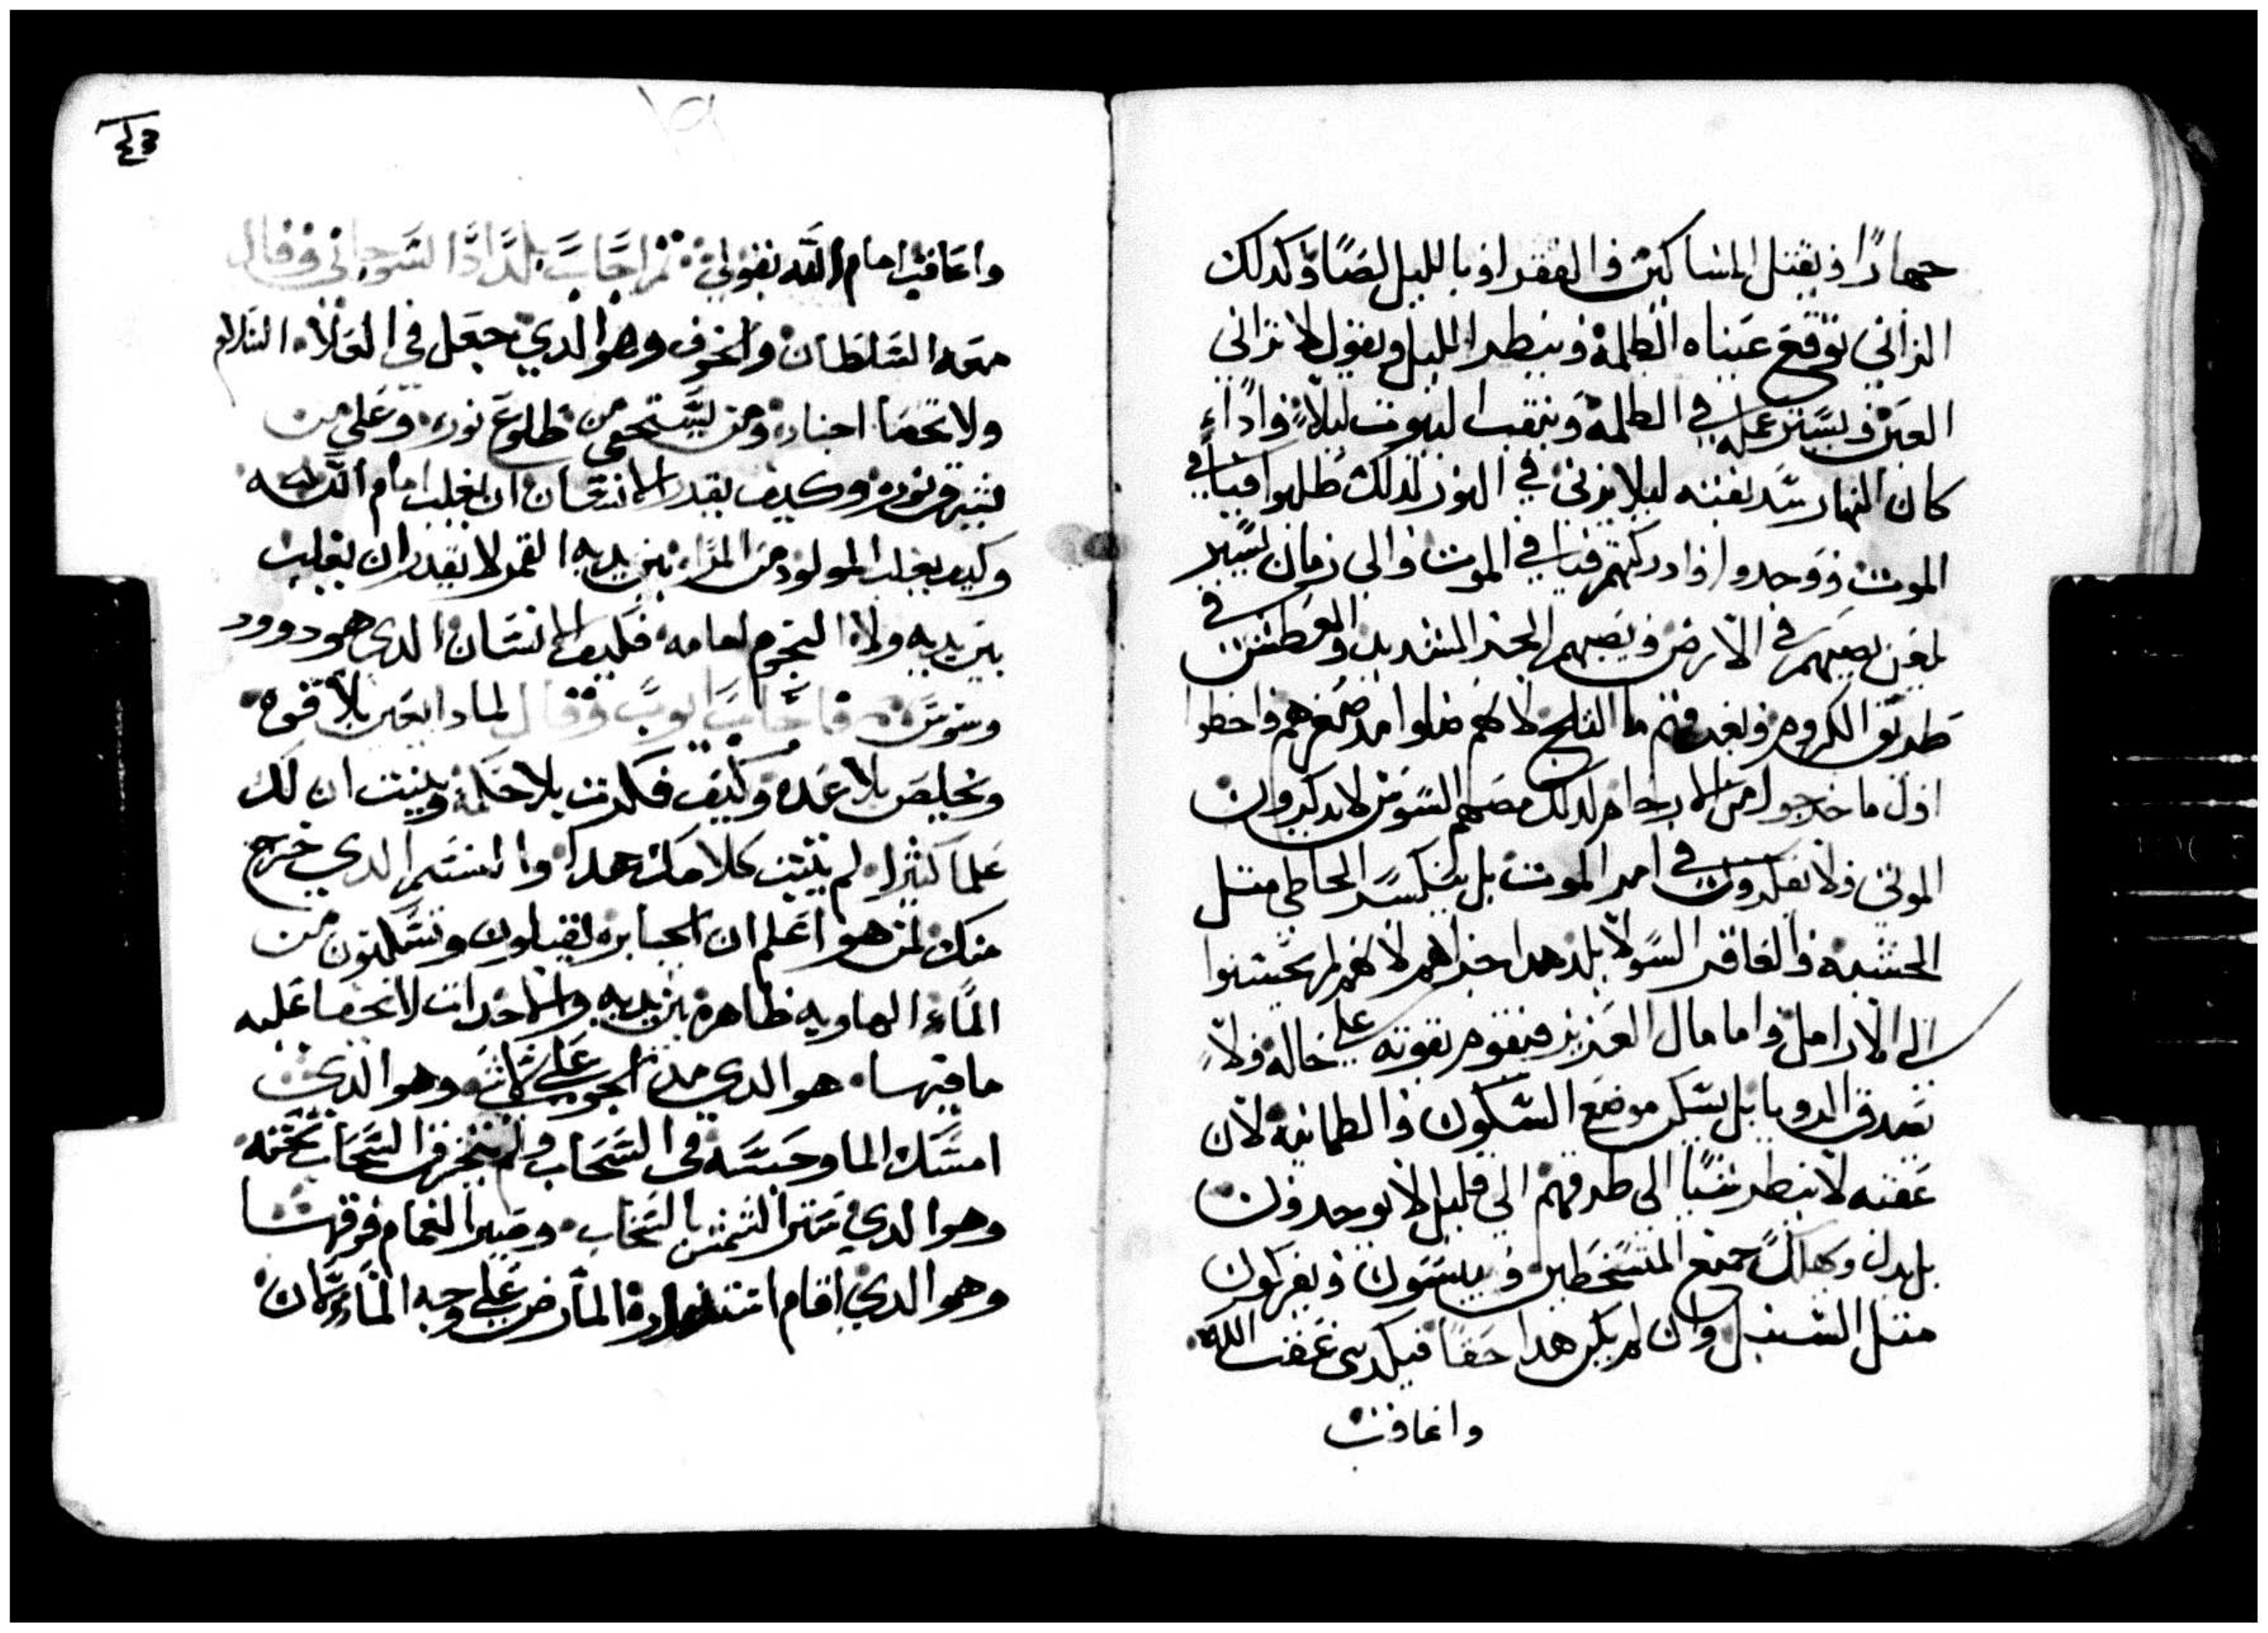 جهارًا ويقتل المساكين والفقرا وبالليل لصًا وكدلك
الزاني توقع عيناه الظلمة وينظر الليل ويقول لا تراني
العين ويستر عمله في الظلمة وينقب البيوت ليلاً واداء
كان النهار سد بفتنه ليلا يزني في النور لدلك ظلهوا فيافي
الموت ووجدوا وادركتهم فيافي الموت والى زمان يسير
لعين نصيبهم في الارض ويصيبهم الحر الشديد والعطش في
طريق الكروم وبعدهم ما الثلج لانهم ضلوا مد صغرهم واخطوا
اول ما خرجوا من الارحام لدلك مصهم السوس لا يدكرون
الموتى ولا يفكرون في امر الموت بل يتكسر الخاطي متل
الخشبه والعاقر السولا بلد هدا جزاهم لانهم لم يحسنوا
الى الارامل واما مال العزيز فيقوم بقوته على حاله ولا
تصدق الدويا بل يسكن موضع السكون والطمانيه لان
عفته لا ينظر شيا الى طرقهم الى قليل لا يوجدون
بل يدل ويهلك جميع المتسخطين وييبسون ويفركون
متل السنبل وان لم يكن هدا حقا فيكدبني عفت الله
واعاقت
واعاقب امام الله بقولي ثم اجاب بلداد السوحاني وقال
معه السلطان والخوف وهو الدي جعل في العلاء السلام
ولا تحصا اجناده ومن ليستخفي من طلوع نوره وعلى من
يشرق نوره وكيف يقدر الانسان ان يغلب امام الله
وكيف يغلب المولود من المراه بين يديه القمر لا يقدر ان يغلب
بين يديه ولا النجوم امامه فكيف الانسان الدي هو دوود
وسوس فاجاب ايوب وقال لمادا تعين بلا قوه
وتخليص بلا عمده وكيف فكرت بلا حكمة وبينت ان لك
علما كثيرا لم يثبت كلامك هدا والنسم الدي خرج
منك لمن هو اعلم ان الجبابره يقبلون وتسكنون من
الماء الهاويه ظاهره بين يديه والاخدات لا تخفا عليه
ما فيها هو الدي مد الجو على لا شي وهو الدي
امسك الما وحبسه في السحاب ولم ينخرق السحاب تحته
وهو الدي ستر الشمس بالسحاب وصير الغمام فوقها
وهو الدي اقام استدارة الارض على وجه الماء كان